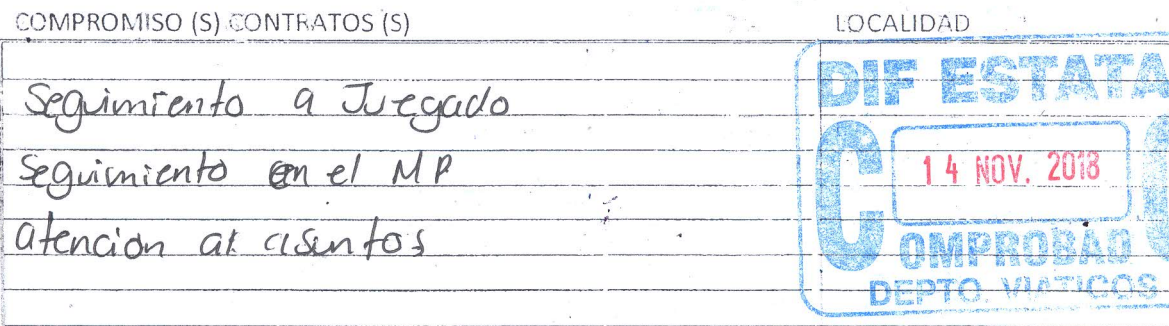 COMPROMISO (S) CONTRATOS (S) LOCALIDAD
Seguimiento a Juegado
Seguimiento en el MP
atención a asuntos
DIF ESTATA
14 NOV. 2018
COMPROBAD
DEPTO. VIATICOS